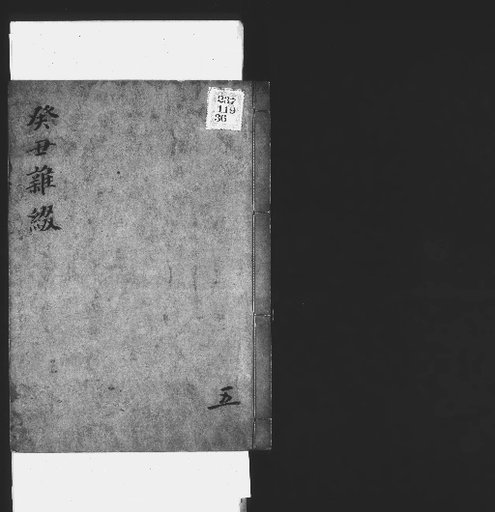 癸丑雜綴
237
119
36
五